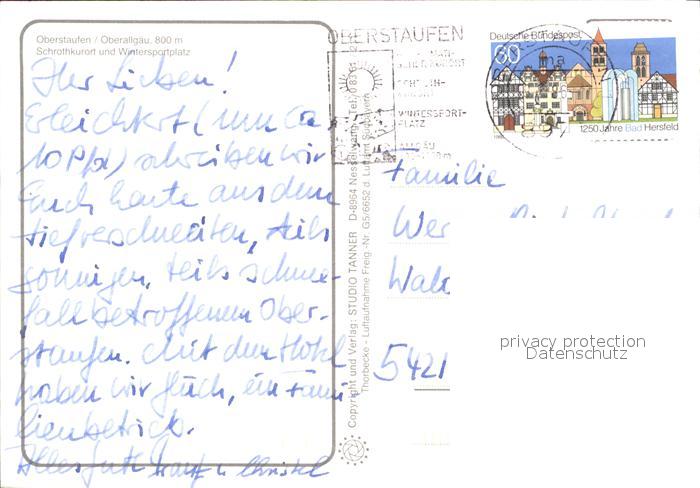 Oberstaufen / Oberallgäu, 800 m
Schrothkurort und Wintersportplatz
Ihr Lieben!
Erleichtert (um ca
10 Pfd), schreiben wir
Euch heute aus dem
tiefverschneiten, teils
sonnigen, teils schnee-
fallbetroffenem Ober-
staufen. Mit dem Hotel
haben wir Glück, ein Fami-
lienbetrieb.
Alles Gute Christel
Copyright und Verlag: STUDIO TANNER D-8964 Nesselwang, Tel. 0 83 61
Thorbecke - Luftaufnahme Freig.-Nr. G5/6652 d. Luftamt Südbayern
OBERSTAUFEN
WINTERSPORT-
PLATZ
ALLGÄU
Deutsche Bundespost
60
1250 Jahre Bad Hersfeld
Familie
Wer
Wal
5421
privacy protection
Datenschutz